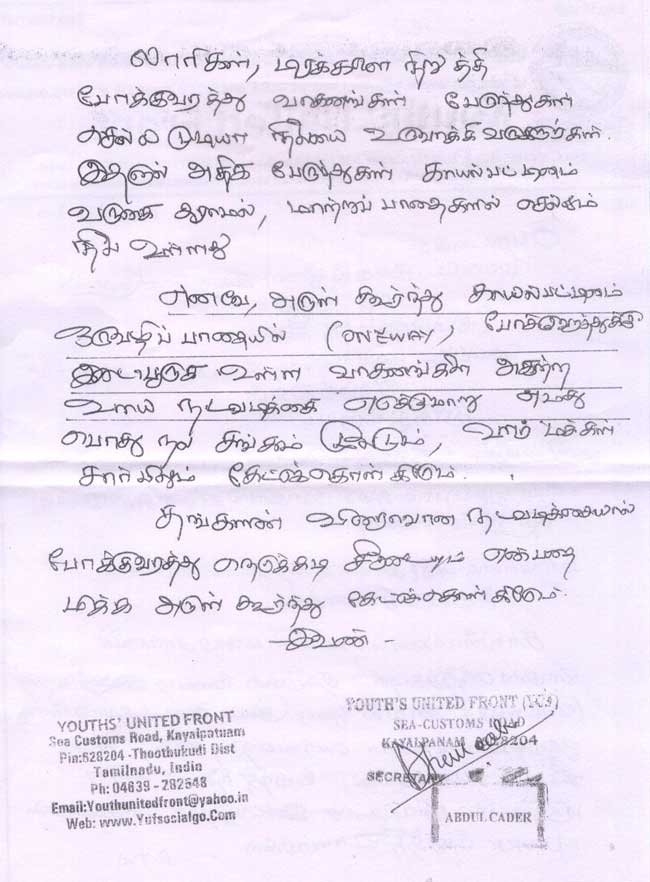 லாரிகள், டிரக்களை நிறுத்தி
போக்குவரத்து வாகனங்கள் பேருந்துகள்
செல்ல முடியா நிலையை உருவாக்கி வருகிறார்கள்.
இதனால் அதிக பேருந்துகள் காயல்பட்டிணம்
வருகை தராமல், மாற்றுப் பாதைகளில் செல்லும்
நிலை உள்ளது
எனவே, அருள் கூர்ந்து காயல்பட்டிணம்
ஒருவழிப் பாதையில் (ONEWAY) போக்குவரத்துக்கு
இடையூறாக உள்ள வாகனங்களை அகற்ற
உரிய நடவடிக்கை எடுக்குமாறு எமது
பொது நல சங்கம் மீண்டும், மக்கள்
சார்பிலும் கேட்டுக்கொள்கிறோம்.
தங்களின் விரைவான நடவடிக்கையால்
போக்குவரத்து நெருக்கடி என்பதை
மிக்க அருள் கூர்ந்து கேட்டுக்கொள்கிறோம்.
- இவண் -
YOUTHS' UNITED FRONT
Sea Customs Road, Kayalpatnam
Pin:528204 -Thoothukudi Dist
Tamilnadu, India
Ph: 04639 - 282548
Email:Youthunitedfront@yahoo.in
Web: www.Yufsocialgo.Com
YOUTH'S UNITED FRONT
SEA-CUSTOMS ROAD
KAYALPANAM
SECRETARY
ABDUL CADER